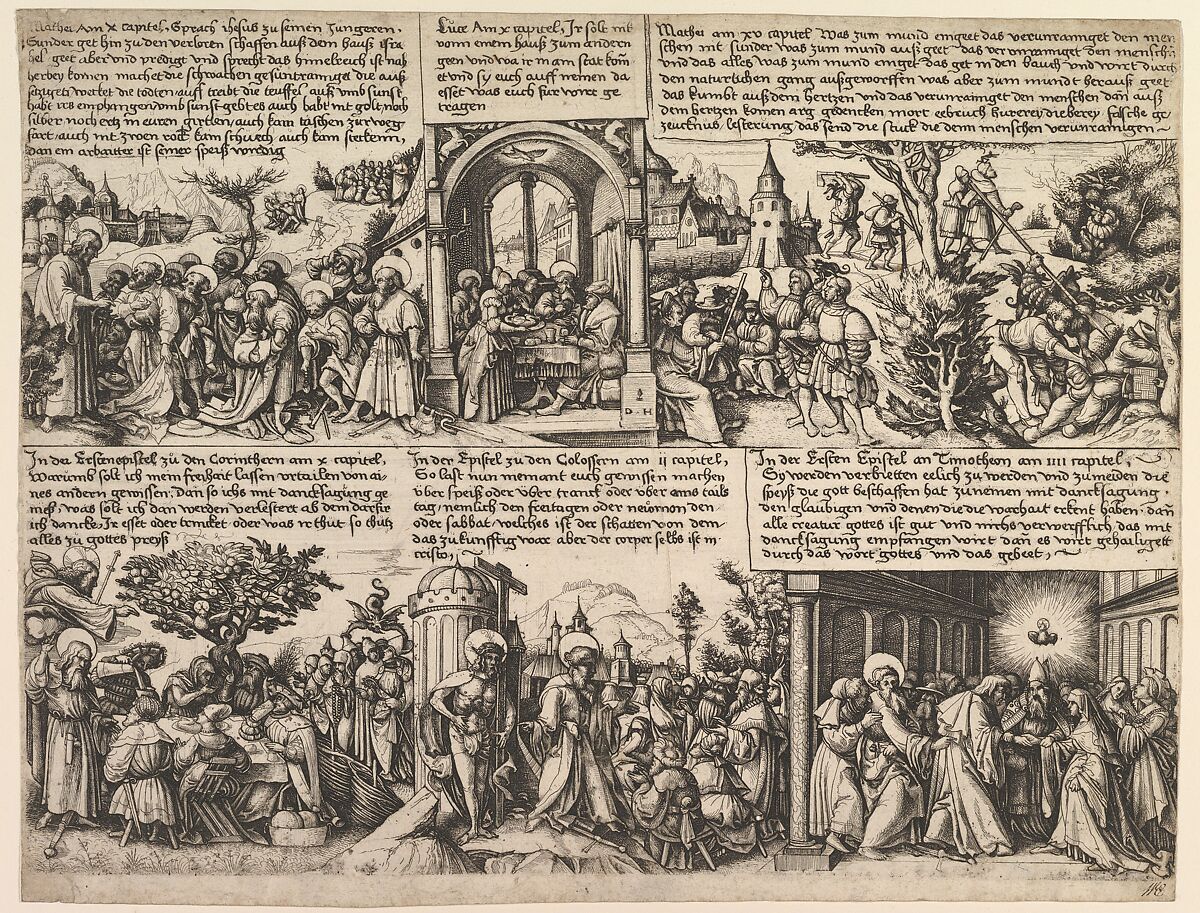 Mathei Am x capitel, Sprach ihesus zu seinen Jungeren,
Sunder get hin zu den verloren schaffen auß dem hauß isra
hel geet aber und predigt und sprecht das himelreich ist nah
herbey komen machet die schwachen gesunt raniiget die auß
setzigen wecket die todten auf treibt die teuffel auß umb sunst
habt irs emphangen umb sunst gebt es auch habt nit golt noch
silber noch ertz in euren girtlen auch kain taschen zur weg
fart auch nit zwen rock kain schuech auch kain steckenn,
dan ein arbaitter ist seiner speiß wirdig
Luce Am x capitel, Ir solt nit
vonn einem hauß zum andern
geen und wa ir in ain stat kom
et und sy euch auff nemen da
esset was euch fur wirt ge
tragen
Mathei am xv capitel Was zum mund einget das verunrainiget den men
schen nit sunder was zum mund auß geet das verunrainiget den menschn
und das alles was zum mund einget das get in den bauch und wirt durch
den naturlichen gang außgeworffen was aber zum mundt herauß geet
das kumbt auß dem hertzen und das verunrainiget den menschen dan auß
dem hertzen komen arg gedencken mort eebruch hurerey dieberey falsche ge
zeucknus lesterung das send die stuck die denn menschen verunrainigen
D H
In der Ersten epistel zu den Corinthern am x capitel,
Warumb solt ich mein freihait lassen urtailen von ai-
nes andern gewissen: dan so ichs mit dancksagung ge
nieß, was solt ich dan werden verlestert ob dem darfir
ich dancke Ir esset oder trincket oder was ir thut so thutz
alles zu gottes preyß
In der Epistel zu den Colossern am ii capitel,
So last nun niemant euch gewissen machen
über speiß oder über tranck oder über ains tails
tag, nemlich den freitagen oder neuwmonden
oder sabbat, welches ist der schatten von dem
das zukunfftig war aber der corper selbs ist in
cristo,
In der Ersten Epistel an Timotheon am iiii capitel,
Sy werden verbietten eelich zu werden und zu meiden die
speyß die gott beschaffen hat zu nemen mit dancksagung
den glaubigen und denen die die warhait erkent haben dan
alle creatur gottes ist gut und nichs verwerfflich das mit
dancksagung empfangen wirt dan es wirt gehailigett
durch das wort gottes und das gebeet,